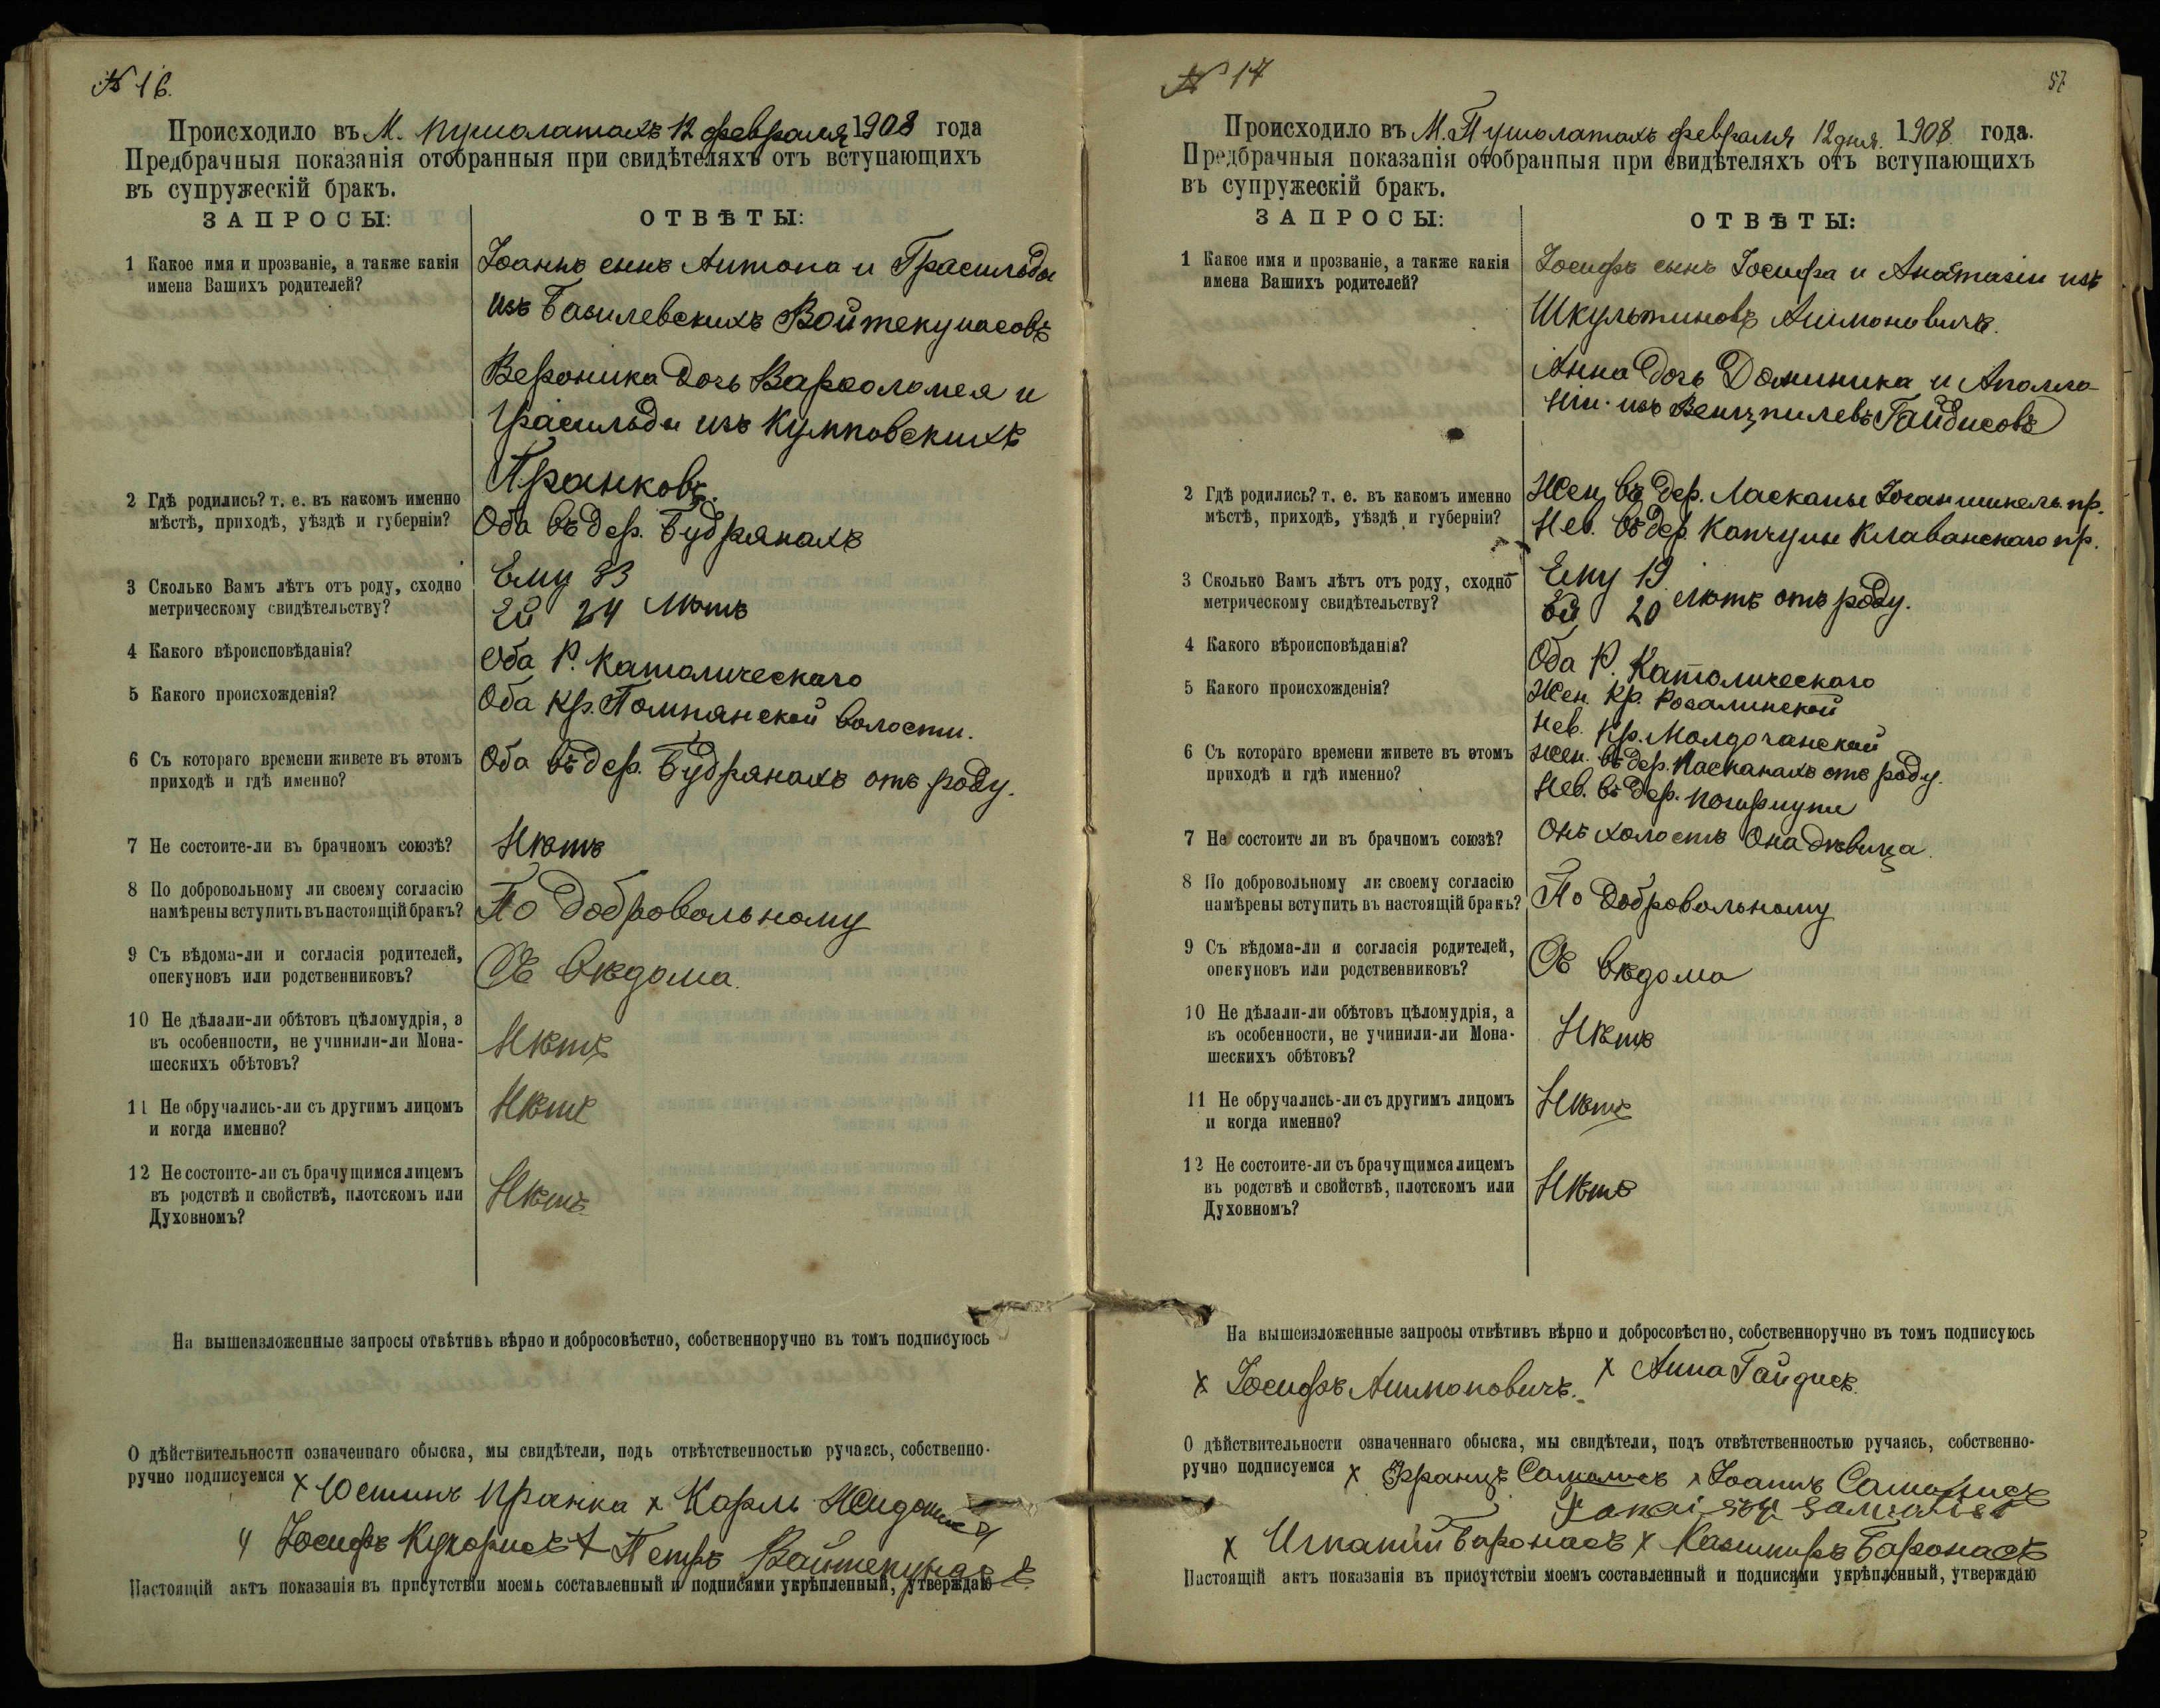 № 16.
Происходило въ М. Пушолатахъ 12 февраля 1908 года
Предбрачныя показанія отобранныя при свидѣтеляхъ отъ вступающихъ
въ супружескій бракъ.
ЗАПРОСЫ:
ОТВѢТЫ:
1 Какое имя и прозваніе, а также какія
имена Вашихъ родителей?
Іоаннъ сынъ Антона и Грасильды
изъ Базилевскихъ Войтекунасовъ
Вероника дочь Варфоломея и
Грасильды изъ Кумповскихъ
Пранковъ.
2 Гдѣ родились? т. е. въ какомъ именно
мѣстѣ, приходѣ, уѣздѣ и губерніи?
Оба въ дер. Будрянахъ
3 Сколько Вамъ лѣтъ отъ роду, сходно
метрическому свидѣтельству?
Ему 33
Ей 24 лѣтъ
4 Какого вѣроисповѣданія?
Оба Р. Католическаго
5 Какого происхожденія?
Оба Кр. Помпянской волости.
6 Съ котораго времени живете въ этомъ
приходѣ и гдѣ именно?
Оба въ дер. Будрянахъ отъ роду.
7 Не состоите-ли въ брачномъ союзѣ?
Нѣтъ
8 По добровольному ли своему согласію
намѣрены вступить въ настоящій бракъ?
По добровольному
9 Съ вѣдома-ли и согласія родителей,
опекуновъ или родственниковъ?
Съ вѣдома.
10 Не дѣлали-ли обѣтовъ цѣломудрія, а
въ особенности, не учинили-ли Мона-
шескихъ обѣтовъ?
Нѣтъ
11 Не обручались-ли съ другимъ лицомъ
и когда именно?
Нѣтъ
12 Не состоите-ли съ брачущимся лицемъ
въ родствѣ и свойствѣ, плотскомъ или
Духовномъ?
Нѣтъ
На вышеизложенные запросы отвѣтивъ вѣрно и добросовѣстно, собственноручно въ томъ подписуюсь
О дѣйствительности означеннаго обыска, мы свидѣтели, подъ отвѣтственностью ручаясь, собственно-
ручно подписуемся х Юстинъ Пранка х Карлъ
Іосифъ Кухорисъ х Петръ Войтекунасъ
Настоящій актъ показанія въ присутствіи моемъ составленный и подписями укрѣпленный, утверждаю
№ 17
57
Происходило въ М. Пушолатахъ февраля 12 дня. 1908 года.
Предбрачныя показанія отобранныя при свидѣтеляхъ отъ вступающихъ
въ супружескій бракъ.
ЗАПРОСЫ:
ОТВѢТЫ:
1 Какое имя и прозваніе, а также какія
имена Вашихъ родителей?
Іосифъ сынъ Іосифа и Анастазіи изъ
Шкультиновъ Анимоновичъ.
Анна дочь Доминика и Аполло-
ніи изъ Венцпилевъ Гайдисовъ
2 Гдѣ родились? т. е. въ какомъ именно
мѣстѣ, приходѣ, уѣздѣ и губерніи?
Жен. въ дер. Ласканы Іоганишкель. пр.
Нев. въ дер. Капчуны Клованскаго пр.
3 Сколько Вамъ лѣтъ отъ роду, сходно
метрическому свидѣтельству?
Ему 19
Ей 20 лѣтъ отъ роду.
4 Какого вѣроисповѣданія?
Оба Р. Католическаго
5 Какого происхожденія?
Жен. Кр. Розалинской
Нев. Кр. Молдочанской
6 Съ котораго времени живете въ этомъ
приходѣ и гдѣ именно?
Жен. въ дер. Ласканахъ отъ роду.
Нев. въ дер.
7 Не состоите ли въ брачномъ союзѣ?
Онъ холостъ Она дѣвица.
8 По добровольному ли своему согласію
намѣрены вступить въ настоящій бракъ?
По добровольному
9 Съ вѣдома-ли и согласія родителей,
опекуновъ или родственниковъ?
Съ вѣдома
10 Не дѣлали-ли обѣтовъ цѣломудрія, а
въ особенности, не учинили-ли Мона-
шескихъ обѣтовъ?
Нѣтъ
11 Не обручались-ли съ другимъ лицомъ
и когда именно?
Нѣтъ
12 Не состоите-ли съ брачущимся лицемъ
въ родствѣ и свойствѣ, плотскомъ или
Духовномъ?
Нѣтъ
На вышеизложенные запросы отвѣтивъ вѣрно и добросовѣстно, собственноручно въ томъ подписуюсь
х Іосифъ Анимоновичъ. х Анна Гайдисъ.
О дѣйствительности означеннаго обыска, мы свидѣтели, подъ отвѣтственностью ручаясь, собственно-
ручно подписуемся х Францъ х Іоаннъ
х Игнатій Баронасъ х Казимиръ Баронасъ
Настоящій актъ показанія въ присутствіи моемъ составленный и подписями укрѣпленный, утверждаю